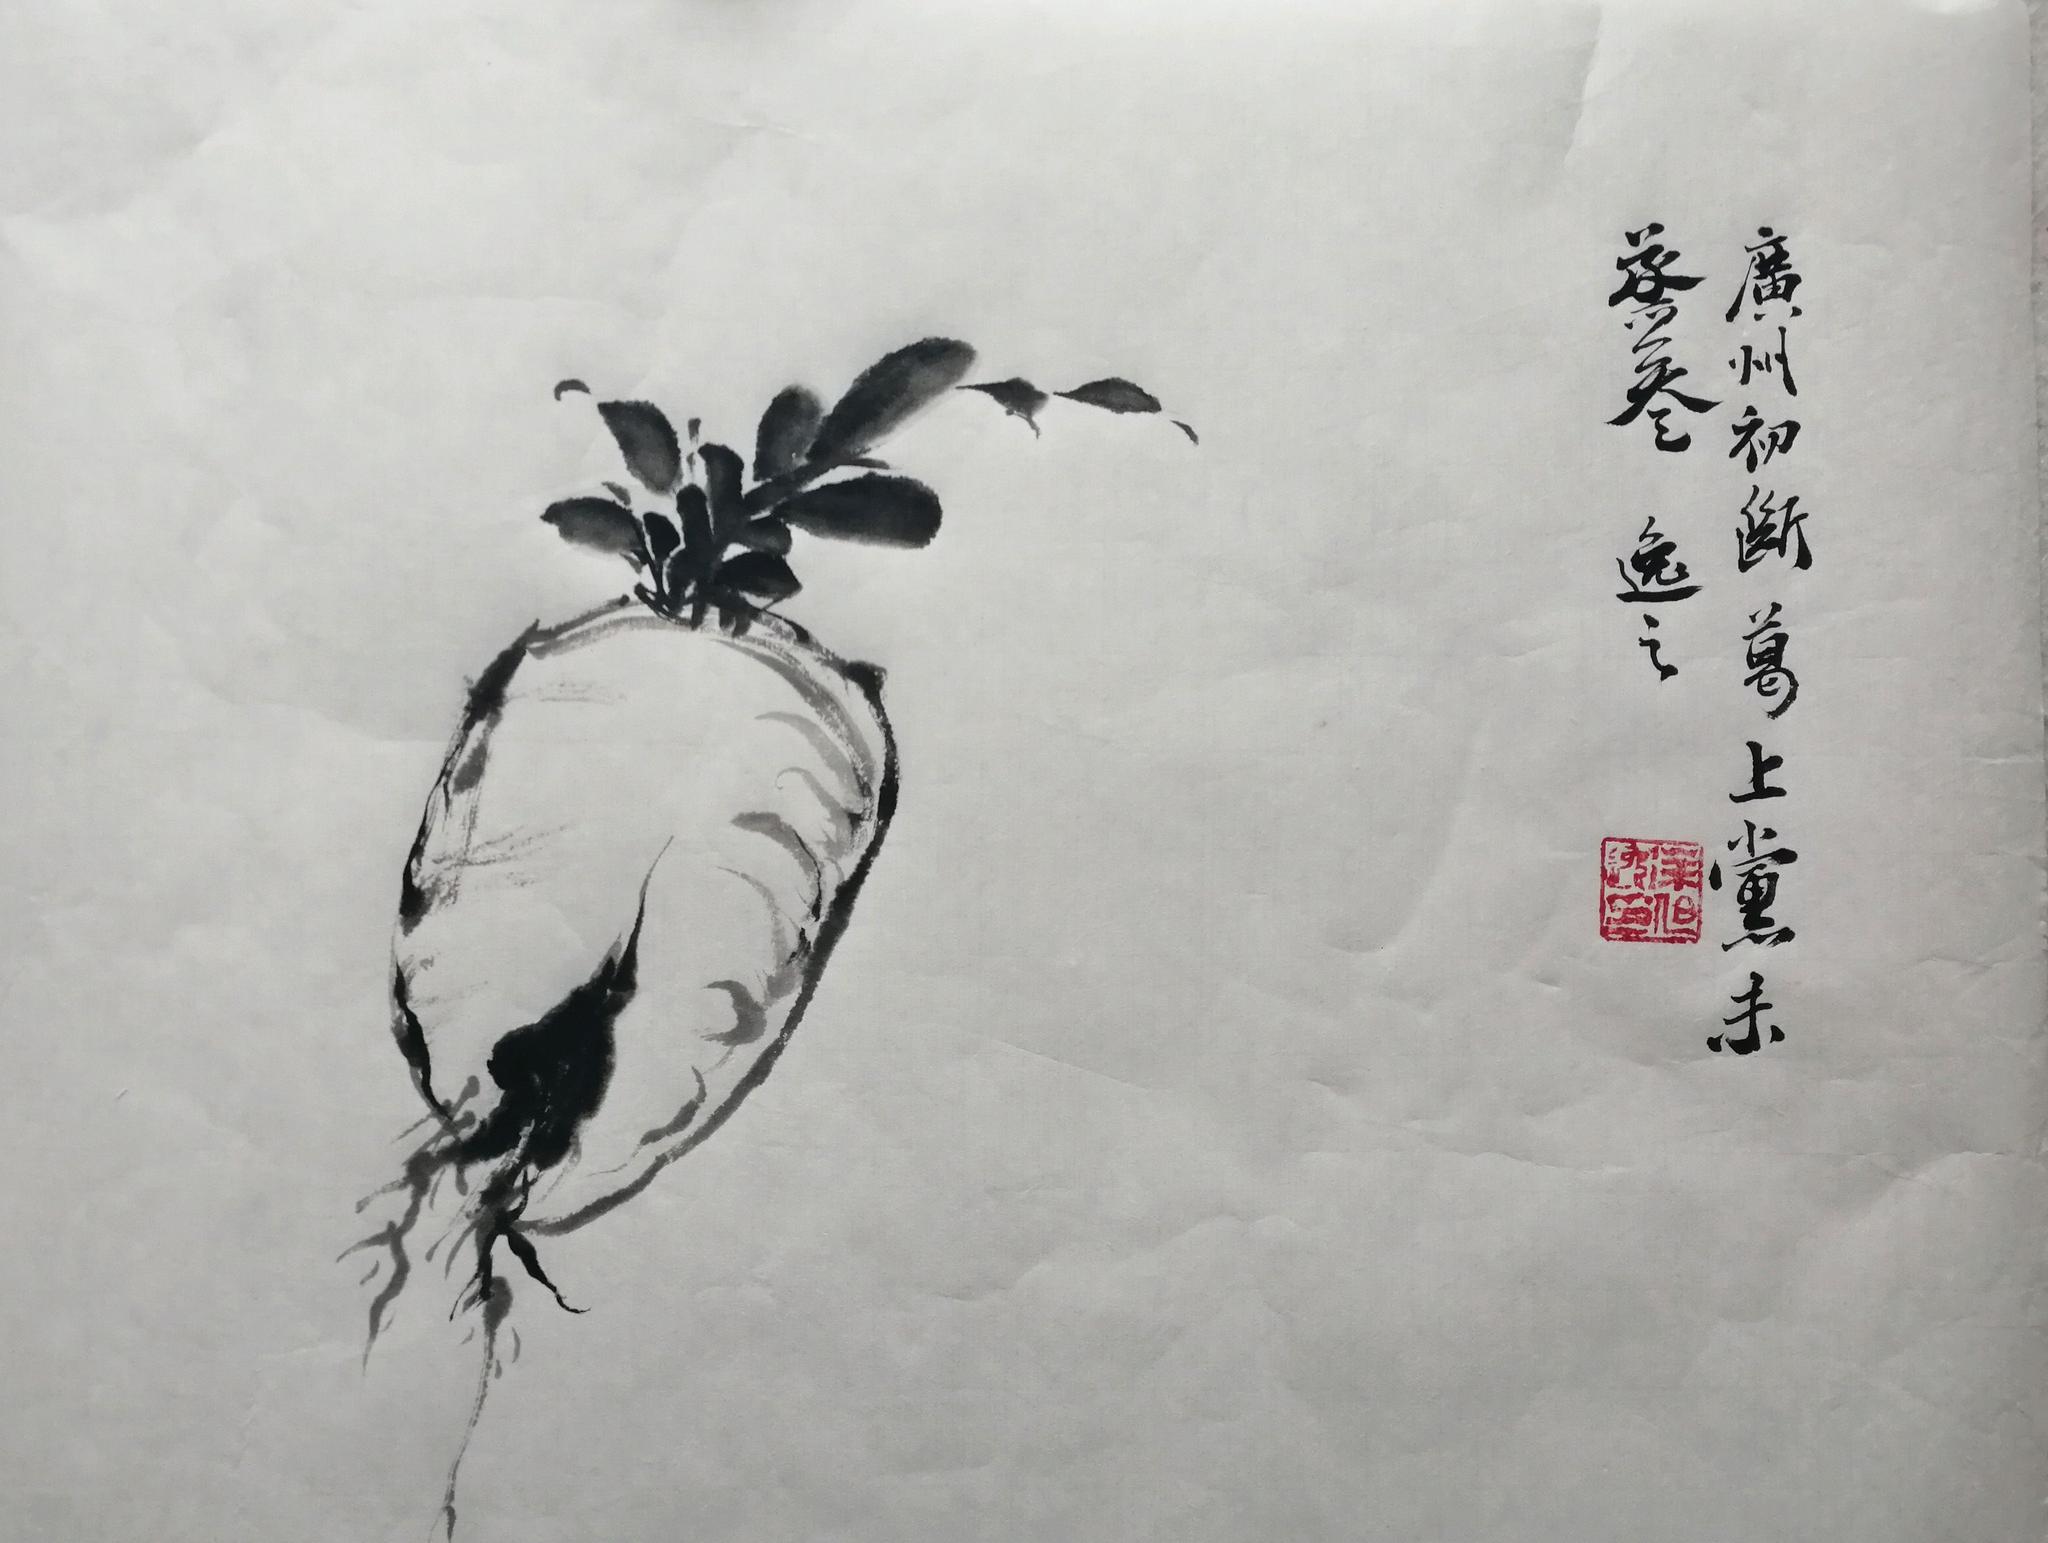 廣州初斷葛上黨未
蒸參 逸之